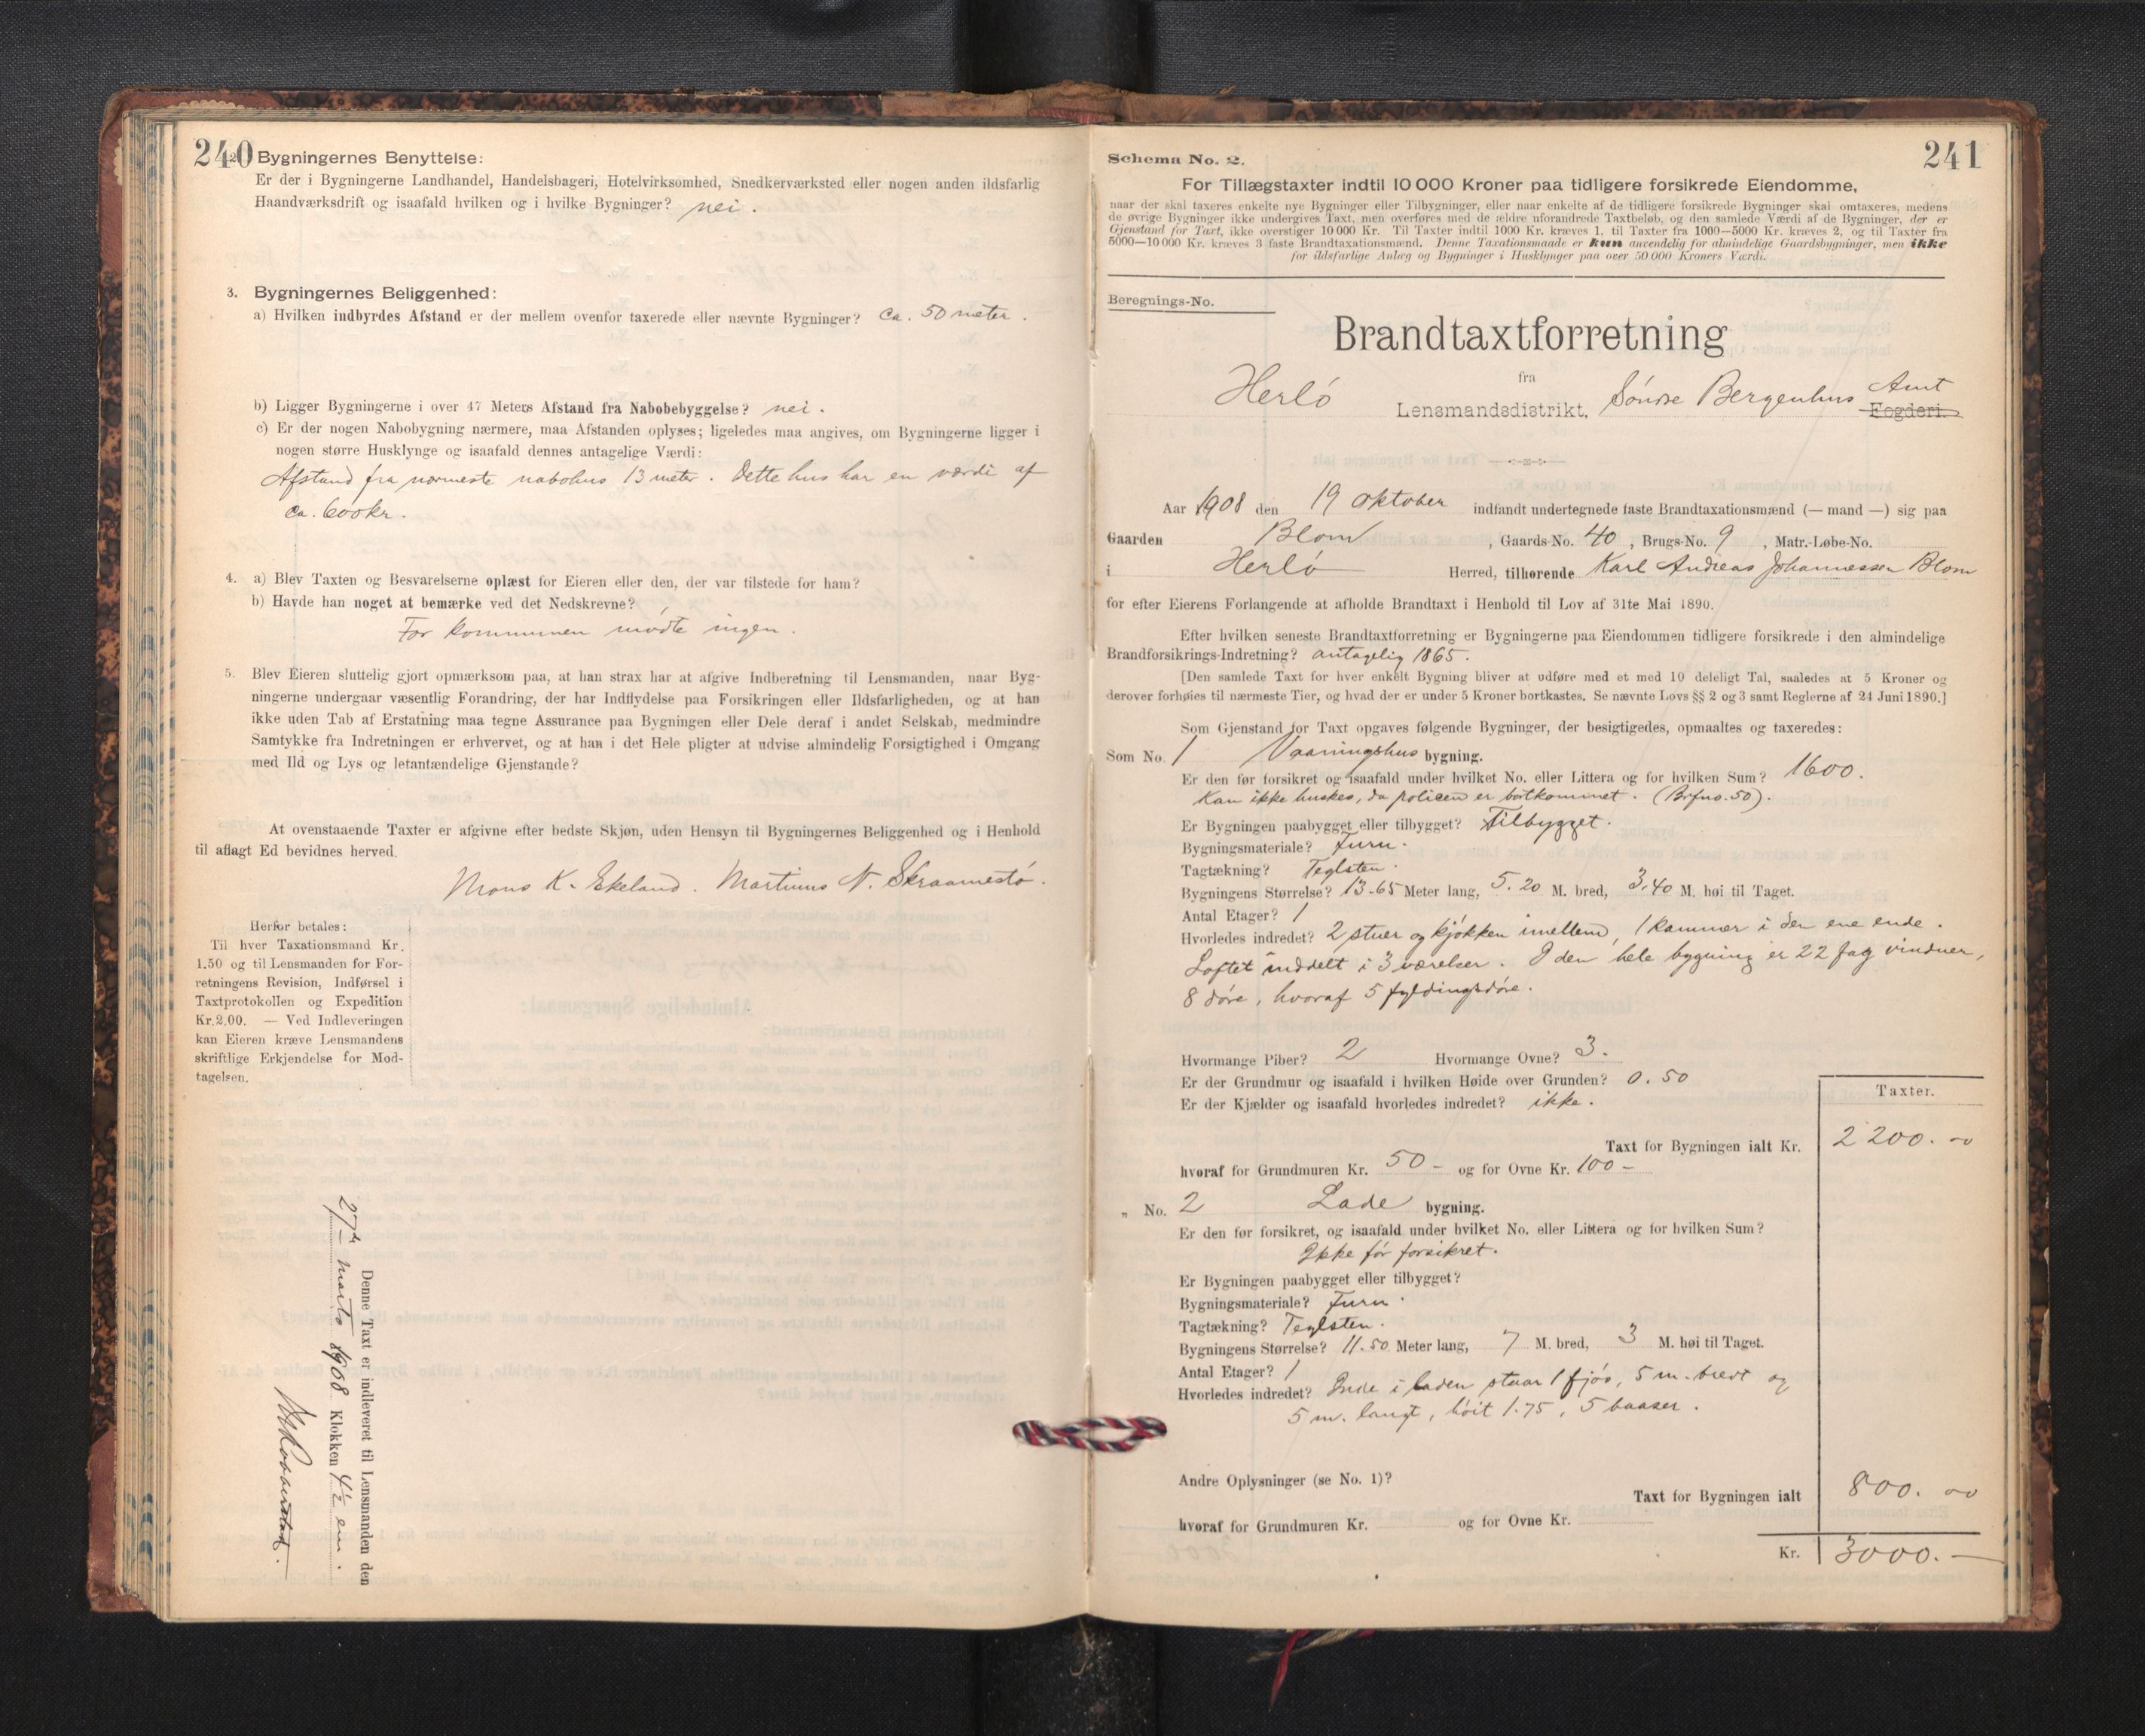 240
2. Bygningernes Benyttelse:
Er der i Bygningerne Landhandel, Handelsbageri, Hotelvirksomhed, Snedkerværksted eller nogen anden ildsfarlig
Haandværksdrift og isaafald hvilken og i hvilke Bygninger? nei.
3. Bygningernes Beliggenhed:
a) Hvilken indbyrdes Afstand er der mellem ovenfor taxerede eller nævnte Bygninger? Ca. 50 meter.
b) Ligger Bygningerne i over 47 Meters Afstand fra Nabobebyggelse? nei.
c) Er der nogen Nabobygning nærmere, maa Afstanden oplyses; ligeledes maa angives, om Bygningerne ligger i
nogen større Husklynge og isaafald dennes antagelige Værdi:
Afstand fra nærmeste nabohus 13 meter. Dette hus har en værdi af
ca. 600 kr.
4. a) Blev Taxten og Besvarelserne oplæst for Eieren eller den, der var tilstede for ham?
b) Havde han noget at bemærke ved det Nedskrevne?
For kommunen mødte ingen.
5. Blev Eieren sluttelig gjort opmærksom paa, at han strax har at afgive Indberetning til Lensmanden, naar Byg-
ningerne undergaar væsentlig Forandring, der har Indflydelse paa Forsikringen eller Ildsfarligheden, og at han
ikke uden Tab af Erstatning maa tegne Assurance paa Bygningen eller Dele deraf i andet Selskab, medmindre
Samtykke fra Indretningen er erhvervet, og at han i det Hele pligter at udvise almindelig Forsigtighed i Omgang
med Ild og Lys og letantændelige Gjenstande?
At ovenstaaende Taxter er afgivne efter bedste Skjøn, uden Hensyn til Bygningernes Beliggenhed og i Henhold
til aflagt Ed bevidnes herved.
Mons K. Ekeland. Martinus N. Skraamestø.
Herfor betales:
Til hver Taxationsmand Kr.
1.50 og til Lensmanden for For-
retningens Revision, Indførsel i
Taxtprotokollen og Expedition
Kr. 2.00. — Ved Indleveringen
kan Eieren kræve Lensmandens
skriftlige Erkjendelse for Mod-
tagelsen.
Denne Taxt er indleveret til Lensmanden den
27de marts 1908 Klokken 4½ em.
241
Schema No. 2.
For Tillægstaxter indtil 10 000 Kroner paa tidligere forsikrede Eiendomme,
naar der skal taxeres enkelte nye Bygninger eller Tilbygninger, eller naar enkelte af de tidligere forsikrede Bygninger skal omtaxeres, medens
de øvrige Bygninger ikke undergives Taxt, men overføres med de ældre uforandrede Taxtbeløb, og den samlede Værdi af de Bygninger, der er
Gjenstand for Taxt, ikke overstiger 10 000 Kr. Til Taxter indtil 1000 Kr. kræves 1, til Taxter fra 1000—5000 Kr. kræves 2, og til Taxter fra
5000—10 000 Kr. kræves 3 faste Brandtaxationsmænd. Denne Taxationsmaade er kun anvendelig for almindelige Gaardsbygninger, men ikke
for ildsfarlige Anlæg og Bygninger i Husklynger paa over 50 000 Kroners Værdi.
Beregnings-No.
Brandtaxtforretning
fra
Herlö Lensmandsdistrikt, Söndre Bergenhus Amt Fogderi.
Aar 1908 den 19 oktober indfandt undertegnede faste Brandtaxationsmænd (— mand —) sig paa
Gaarden Blom, Gaards-No. 40, Brugs-No. 9, Matr.-Løbe-No.
i Herlö Herred, tilhørende Karl Andreas Johannessen Blom
for efter Eierens Forlangende at afholde Brandtaxt i Henhold til Lov af 31te Mai 1890.
Efter hvilken seneste Brandtaxtforretning er Bygningerne paa Eiendommen tidligere forsikrede i den almindelige
Brandforsikrings-Indretning? antagelig 1865.
[Den samlede Taxt for hver enkelt Bygning bliver at opføre med et med 10 deleligt Tal, saaledes at 5 Kroner og
derover forhøies til nærmeste Tier, og hvad der er under 5 Kroner bortkastes. Se nævnte Lovs §§ 2 og 3 samt Reglerne af 24 Juni 1890.]
Som Gjenstand for Taxt opgaves følgende Bygninger, der besigtigedes, opmaaltes og taxeredes:
Som No. 1 Vaaningshus bygning.
Er den før forsikret og isaafald under hvilket No. eller Littera og for hvilken Sum? 1600.
Kan ikke huskes, da policen er bortkommet. (Brfno. 50).
Er Bygningen paabygget eller tilbygget? Tilbygget.
Bygningsmateriale? Furu.
Tagtækning? Teglsten.
Bygningens Størrelse? 13.65 Meter lang, 5.20 M. bred, 3.40 M. høi til Taget.
Antal Etager? 1
Hvorledes indredet? 2 stuer og kjökken imellem, 1 kammer i den ene ende.
Loftet inddelt i 3 værelser. I den hele bygning er 22 fag vinduer,
8 döre, hvoraf 5 fyldingsdöre.
Hvormange Piber? 2 Hvormange Ovne? 3.
Er der Grundmur og isaafald i hvilken Høide over Grunden? 0.50
Er der Kjælder og isaafald hvorledes indredet? ikke.
Taxter.
Taxt for Bygningen ialt Kr. 2200. 00
hvoraf for Grundmuren Kr. 50 – og for Ovne Kr. 100 –
„ No. 2 Lade bygning.
Er den før forsikret, og isaafald under hvilket No. eller Littera og for hvilken Sum?
Ikke för forsikret.
Er Bygningen paabygget eller tilbygget?
Bygningsmateriale? Furu.
Tagtækning? Teglsten.
Bygningens Størrelse? 11.50 Meter lang, 7 M. bred, 3 M. høi til Taget.
Antal Etager? 1
Hvorledes indredet? Inde i laden staar 1 fjös, 5 m. bredt og
5 m. langt, höit 1.75, 5 baaser.
Andre Oplysninger (se No. 1)?
Taxt for Bygningen ialt 800. 00
hvoraf for Grundmuren Kr. og for Ovne Kr.
Kr. 3000. —